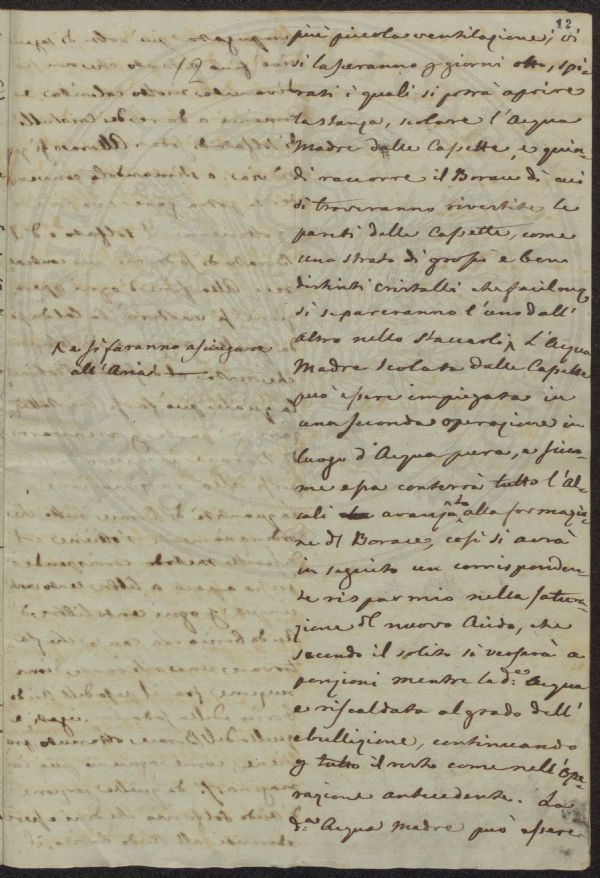 12
più piccola ventilazione; vi
si lasceranno p giorni otto, spi-
rati i quali si potrà aprire
la stanza, scolare l'Acqua
Madre dalle Cassette, e quin-
di raccorre il Borace di cui
si troveranno rivestite le
pareti delle Cassette, come
uno strato di grossi e ben
distinti cristalli che facilmte
si separeranno l'uno dall'
altro nello staccarli^ L'Acqua
Madre scolata dalle Cassette
può essere impiegata in
una seconda operazione in
luogo d'Acqua pura, e sicco-
me essa conterrà tutto l'Al-
cali avanzato alla formazio-
ne dl Borace, così si avrà
in seguito un corrisponden-
te risparmio nella satura-
zione dl nuovo Acido, che
secondo il solito si verserà a
porzioni mentre la d.a Acqua
è riscaldata al grado dell'
ebullizione, continuando
p tutto il resto come nell'Ope-
razione antecedente. La
d.a Acqua Madre può essere
12
^ e si faranno asciugare
all'Aria